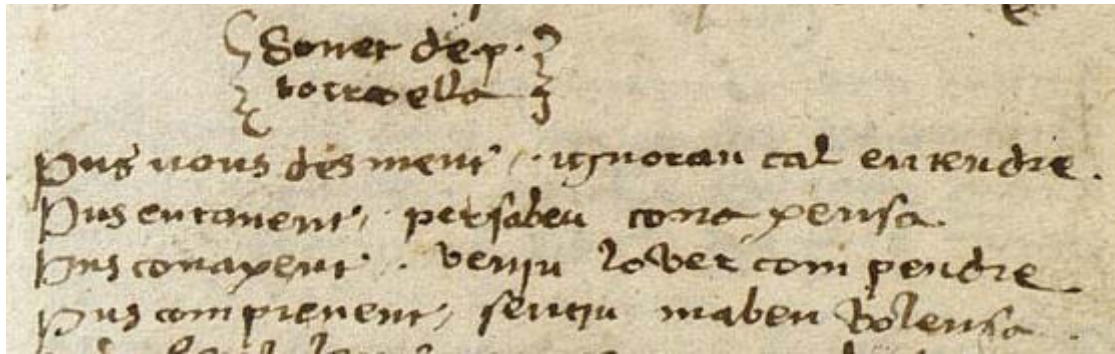 Sonet de.p.
torroella
Pus nous desment, ignoran cal entendre.
Pus entenent, persabeu conaxensa.
Pus conaxent. veniu lo ver compendre
Pus comprenent, sentiu maben volensa.